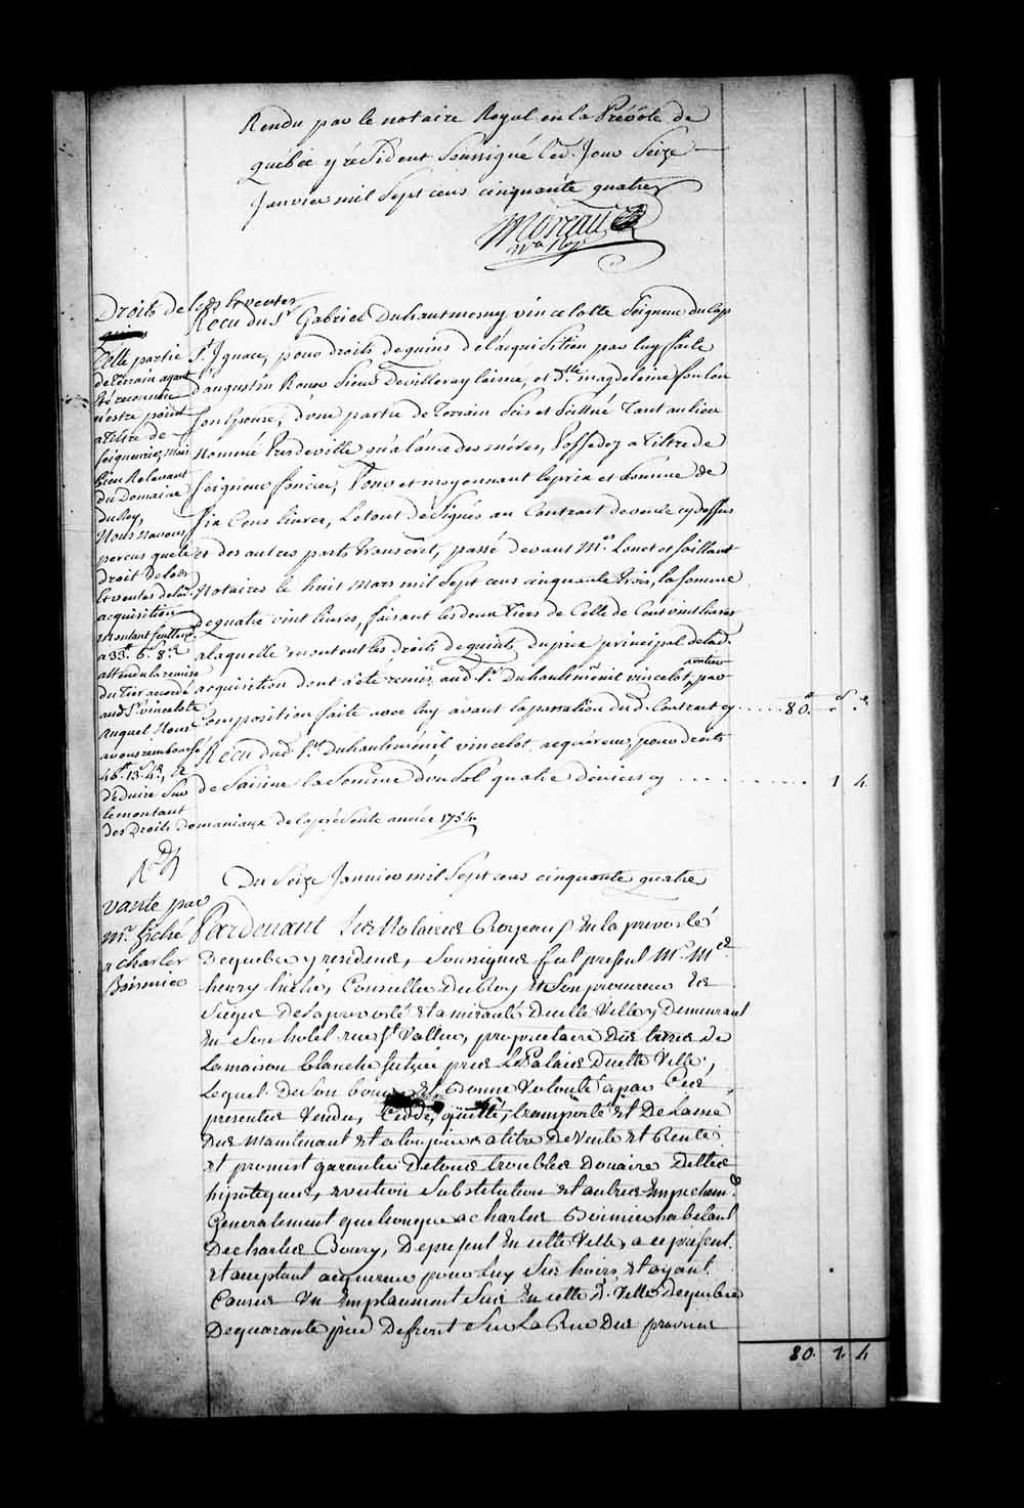 Rendu par le notaire Royal en la Prévôté de
québec y résident soussigné led. Jour Seize
Janvier mil Sept cens cinquante quatre
Moreau
Nre Roy
Droits de lods Et ventes
Celle partie
de Terrain ayant
Eté reconnüe
n'estre point
a Titre de
seigneurie, Mais
bien Relevant
du Domaine
du Roy,
Nous n'avons
percus que le
droit de lods
Et ventes de lad.
acquisition
montant seullemt
a 33tt. 6s. 8d.
attendu la remise
du Tier accordé
aud. Sr. vincelote
auquel Nous
avons remboursé
46tt. 13s. 4d., a
déduire Sur
le montant
des Droits Domaniaux de la présente année 1754.
Recu du Sr. Gabriel Duhautmesny vincelotte Seigneur du Cap
St. Ignace, pour droits de quins de l'acquisition par luy faite
d'augustin Rouer Sieur Devilleray laisné, et dlle. magdeleine foulon
son Epouse, d'une partie de Terrain Sis et Scittué Tant au lieu
Nommé Presdeville qu'a l'ance des mères, Possedez a Titre de
seigneur foncier, Pour et moyennant le prix et Somme de
six Cens livres, Le tout désigné au Contrat de vente cy dessus
et des autres parts transcrit, passé devant Me. Lanouet et Saillant
Notaires le huit Mars mil Sept cens cinquante Trois, la somme
de quatre vint livres, faisant les deux Tiers de Celle de Cent vint livres
a laquelle montent les droits de quints, du prix principal de lad.
acquisition dont a été remis aud. Sr. Duhautménil vincelot par
Composition faite avec luy avant la passation dud. Contrat cy ..... 80tt. s. d.
Récu dud. Sr. Duhautménil vincelot acquéreur, pour droits
de Saisine la Somme d'un Sol quatre deniers cy .......... 1 4
vante par
mr. hiché
a charles
Boismier
Du Seize Janvier mil Sept cens cinquante quatre
Pardevant Les Notaires Royeaux En la prevosté
De quebec y residents, soussignes fut present Mr. Me.
henry hiché, Conseiller Du Roy Et Son procureur Es
Sieges De la prevosté Et amirauté De cette Ville y Demeurant
En Son hotel rue St Vallier, proprietaire Des terres De
La maison blanche scituée pres Le Palais De cette Ville,
Lequel De Son bon Et Bonne Volonté a par Ces
presentes Vendu, Cedde, quitté, transporté Et Delaissé
Des Maintenant Et a toujours a titre De Vente Et Rente
Et promet garantir De tous troubles Douaire Dettes
hipoteques, eviction Substitution Et autres Empechemt.
Generalement quelconque a charles Boismier habitant
De charles Bourg, De present En cette Ville, a ce present
Et acceptant acquereur pour Luy Ses hoirs Et ayant
Causes Un Emplacement Scis En cette d. Ville De quebec
De quarante pied De front Sur La Rue Des prairies
80. 1. 4